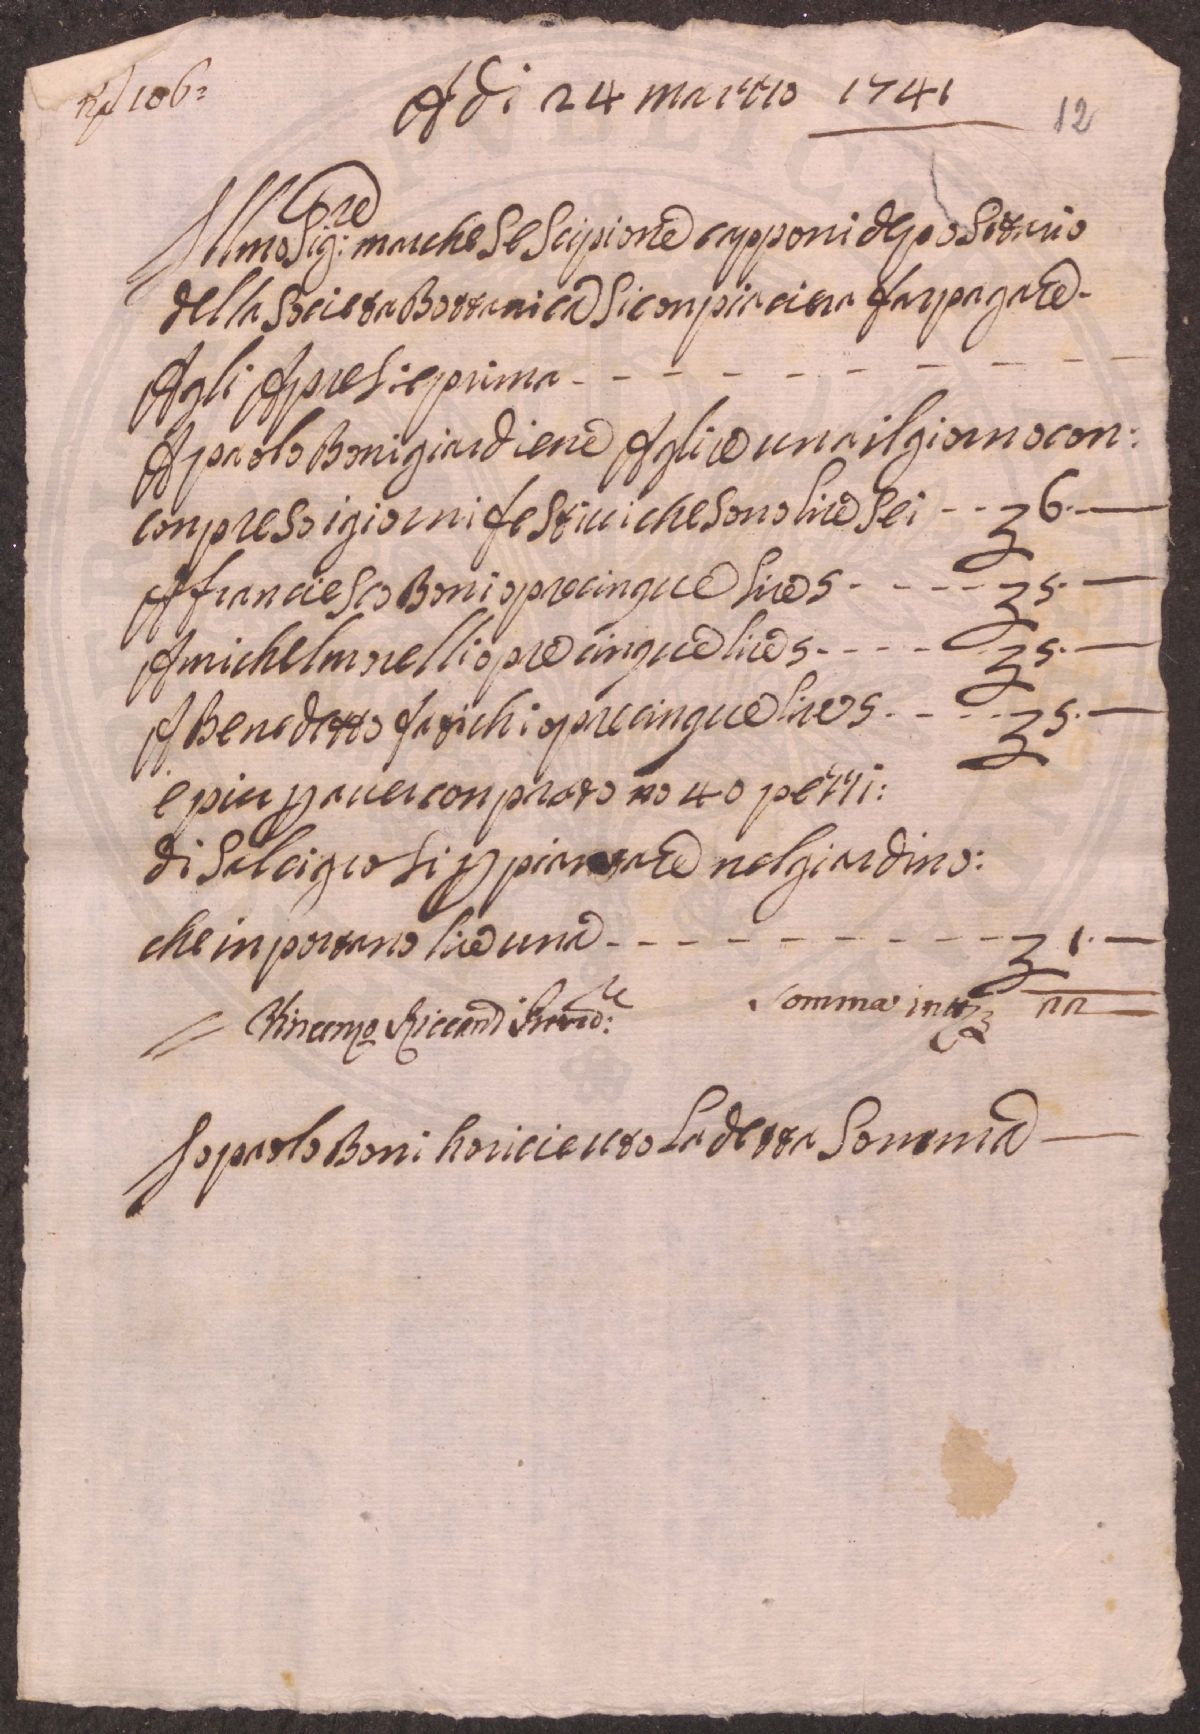 106:
A di 24 Marzo 1741
12
Ill.mo Sig:re marchese Scipione capponi depositario
della Societa Bottanica Si conpiaciera far pagare
Agli Apresi e prima
A paolo Boni giardiene A lire una il giorno con:
conpreso i giorni festiui che sono lire Sei 6.
A franciesco Boni opre cinque lire 5 5.
A michel morelli opre cinque lire 5 5.
A Benedetto fatichi opre cinque lire 5 5.
e piu p auer conprato no 40 pezzi:
di Salcigrosi p piantare nel giardino:
che inportano lire una 1.
Somma in tt. 22
Vincenzo Riccardi
Io paolo Boni ho ricieuto La detta Somma